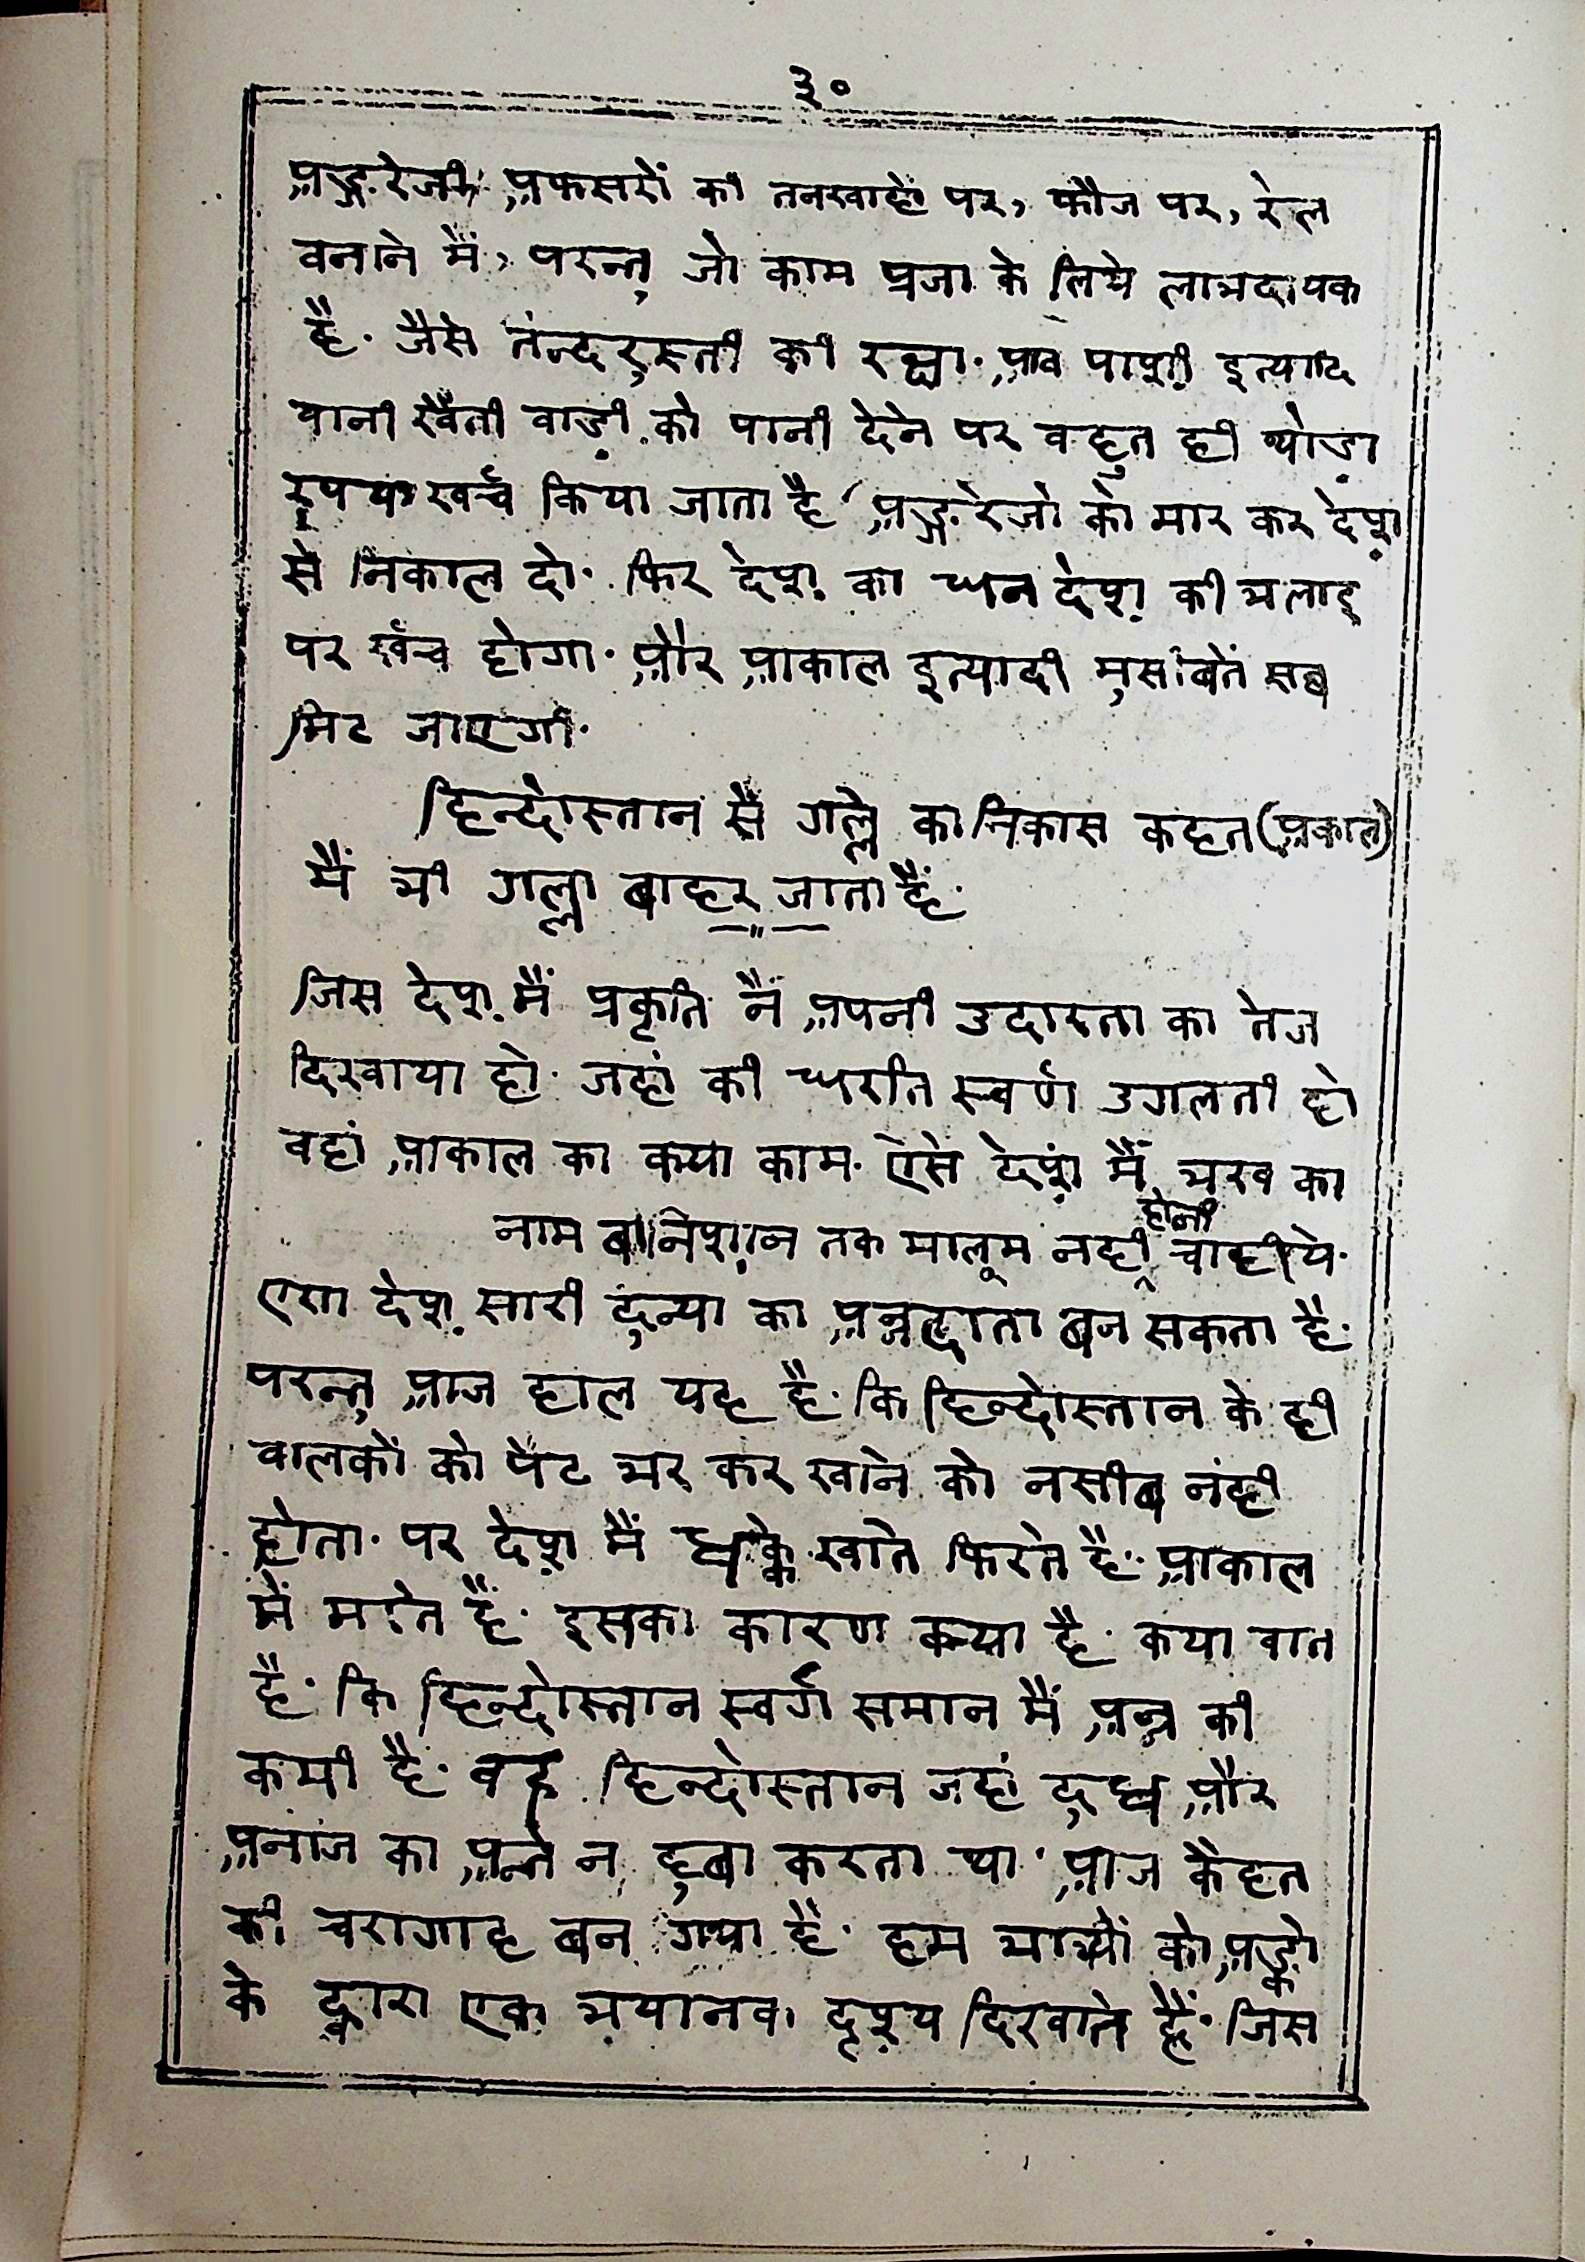 ३०
अङ्गरेजी अफसरों की तनखाहों पर, फौज पर, रेल
वनाने मैं, परन्तु जो काम प्रजा के लिये लाभदायक
है. जैसे तंन्दरुस्ती की रक्षा. आव पाशी इत्यादि
यानी खेती वाड़ी को पानी देने पर वहुत ही थोड़ा
रुपया खर्च किया जाता है अङ्गरेजो को मार कर देश
से निकाल दो. फिर देश का धन देश की भलाइ
पर खर्च होगा. और आकाल इत्यादी मुसीबतें सब
मिट जाएगी.
हिन्दोस्तान सें गल्ले का निकास कहत (अकाल)
मैं भी गल्ला बाहर जाता हैं.
जिस देश मैं प्रकृति नैं अपनी उदारता का तेज
दिखाया हो. जहां की धरति स्वर्ण उगलती हो
वहां आकाल का कया काम. ऐसे देशं मैं भख का
नाम बानिशान तक मालूम नही होनी चाहीये.
एसा देश सारी दुन्या का अन्नदाता बन सकता है.
परन्तु आज हाल यह है. कि हिन्दोस्तान के ही
वालकों को पेट भर कर खाने को नसीब नंही
होता. पर देश मैं धक्के खाते फिरते है. आकाल
में मरते हैं. इसका कारण कया है. कया वात
है. कि हिन्दोस्तान स्वर्ग समान मैं अन्न की
कमी है. वह हिन्दोस्तान जहां दुध और
अनाज का अन्त न हुबा करता था. आज कैहत
की चरागाह बन गया है. हम भाइयों को अङ्को
के द्वारा एक भयानक दृश्य दिखाते हैं. जिस